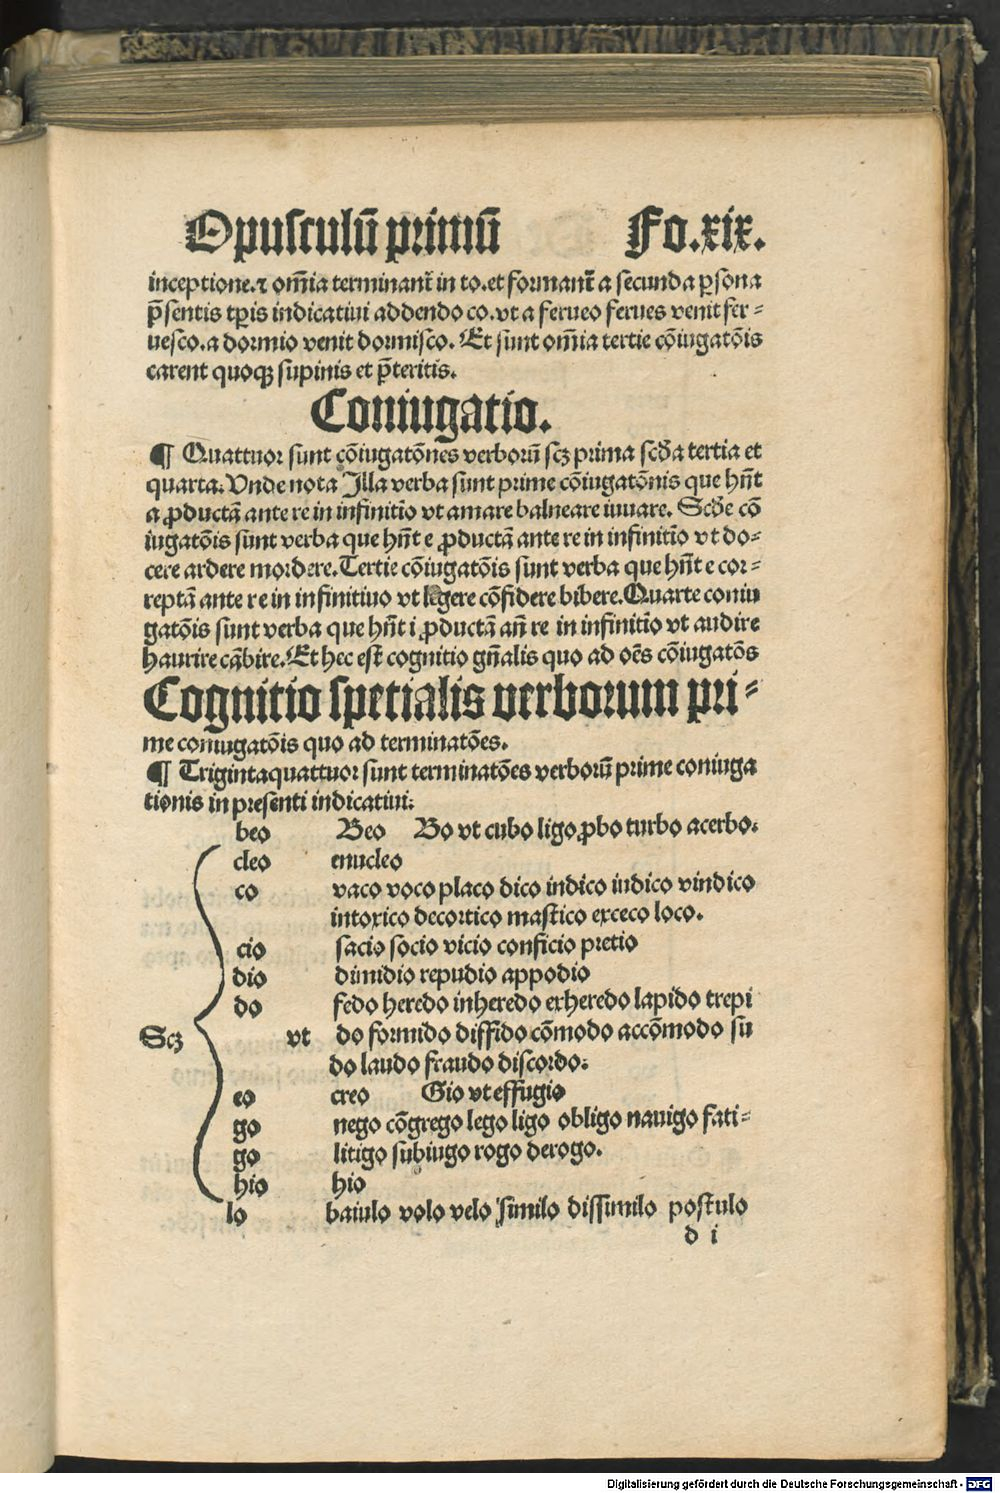 Opusculū primū Fo.xix.
inceptione.⁊ oīnia terminant̄ in to.et formant̄ a secunda ꝑsona
p̄sentis tꝑis indicatiui addendo co.vt a ferueo ferues venit fer-
uesco.a dormio venit dormisco. Et sunt oīnia tertie cōiugatōis
carent quoqꝫ supinis et p̄teritis.
Coniugatio.
¶ Quattuor sunt cōiugatōnes verborū scꝫ prima scd̄a tertia et
quarta. Vnde nota Illa verba sunt prime cōiugatōnis que hn̄t
a ꝓductā ante re in infinitīo vt amare balneare iuuare. Scd̄e cō
iugatōis sunt verba que hn̄t e ꝓductā ante re in infinitīo vt do-
cere ardere mordere. Tertie cōiugatōis sunt verba que hn̄t e cor-
reptā ante re in infinitiuo vt legere cōfidere bibere. Quarte coniu
gatōis sunt verba que hn̄t i ꝓductā an̄ re in infinitīo vt audire
haurire cābire. Et hec est cognitio gn̄alis quo ad oēs cōiugatōs
Cognitio spetialis verborum pri-
me coniugatōis quo ad terminatōes.
¶ Trigintaquattuor sunt terminatōes verborū prime coniuga
tionis in presenti indicatiui.
beo Beo Bo vt cubo ligo ꝓbo turbo acerbo.
cleo enucleo
co vaco voco placo dico indico iudico vindico
intoxico decortico mastico exceco loco.
cio sacio socio vicio conficio pretio
dio dimidio repudio appodio
do fedo heredo inheredo exheredo lapido trepi
Scꝫ vt do formido diffido cōmodo accōmodo su
do laudo fraudo discordo.
eo creo Gio vt effugio
go nego cōgrego lego ligo obligo nauigo fati-
go litigo subiugo rogo derogo.
hio hio
lo baiulo volo velo similo dissimilo postulo
d i
Digitalisierung gefördert durch die Deutsche Forschungsgemeinschaft - DFG